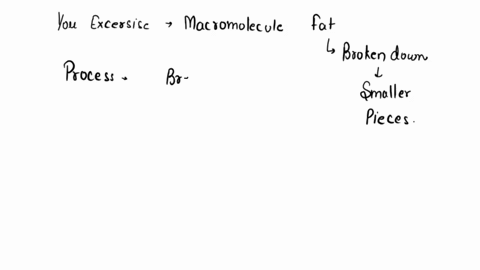 You Excersise → Macromolecule Fat
↳ Broken down
↓
Smaller
Process. Br-
Pieces.